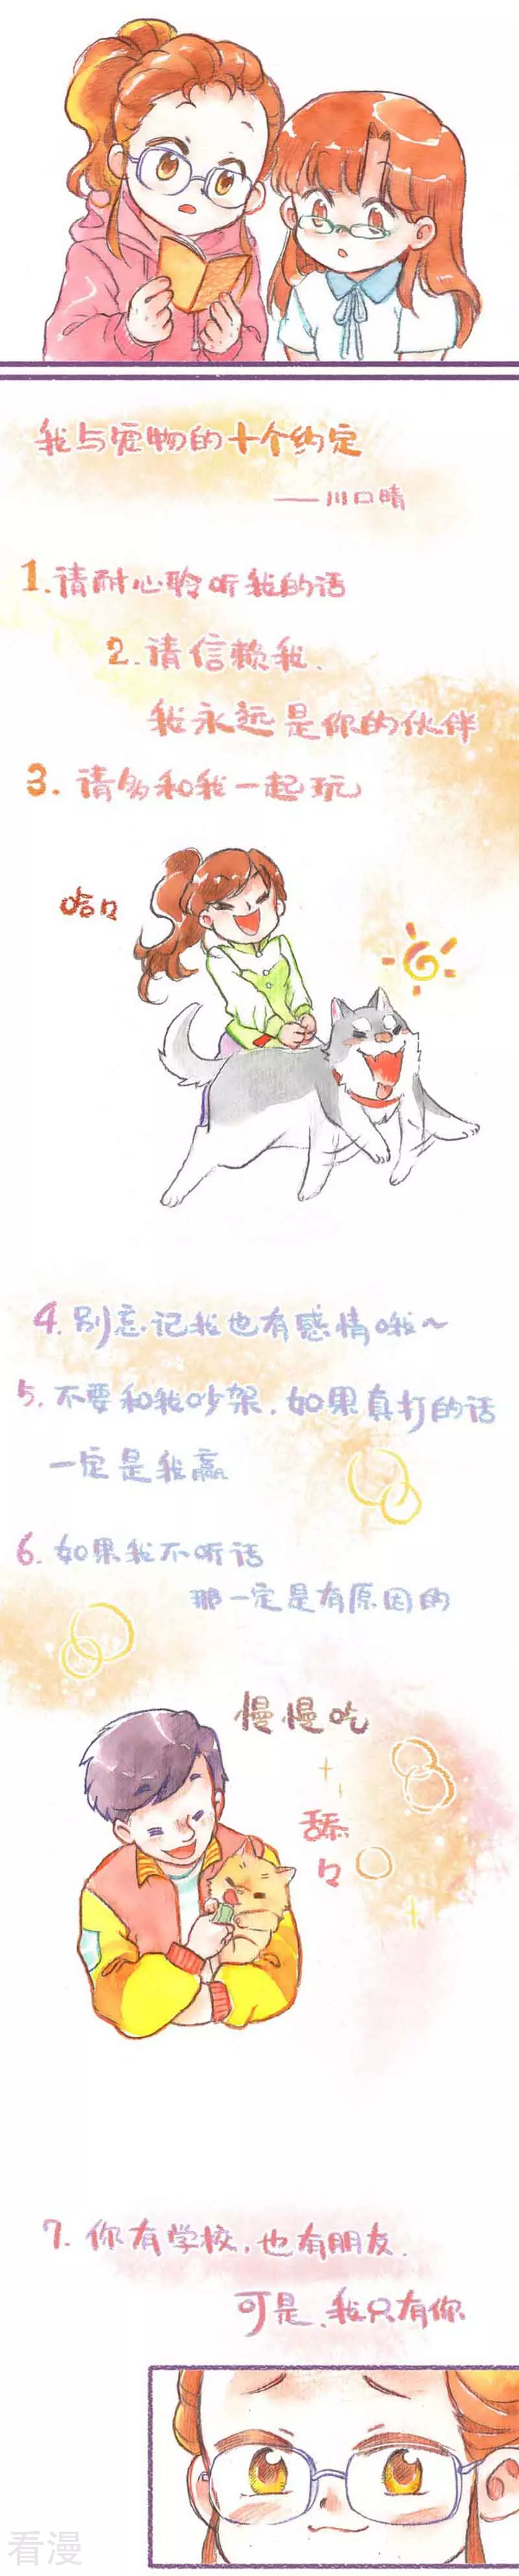 我与宠物的十个约定
——川口晴
1.请耐心聆听我的话
2.请信赖我.
我永远是你的伙伴
3.请多和我一起玩
哈々
4.别忘记我也有感情哦~
5.不要和我吵架.如果真打的话
一定是我赢
6.如果我不听话
那一定是有原因的
慢慢吃
舔
々
7.你有学校.也有朋友.
可是.我只有你
看漫